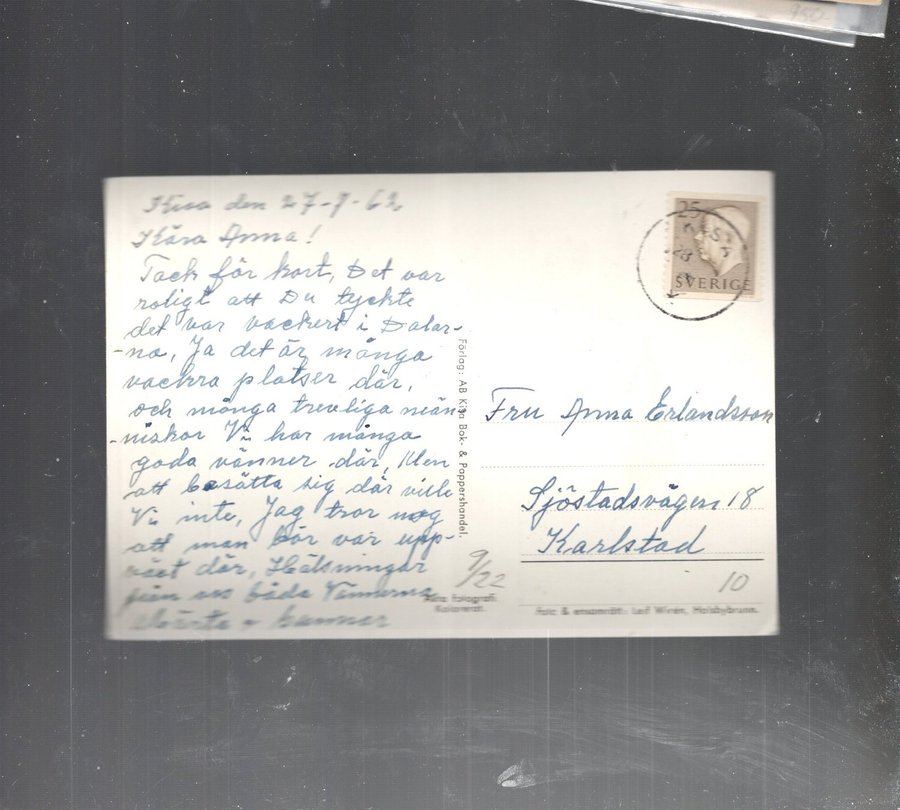 Kisa den 27-9-62
Kära Anna!
Tack för kort, Det var
roligt att Du tyckte
det var vackert i Dalar-
-na, Ja det är många
vackra platser där,
och många trevliga män
-niskor Vi har många
goda vänner där, Men
att besätta sig där ville
Vi inte, Jag tror nog
att man bör var upp-
växt där, Hälsningar
från oss båda Vännerna
Märta o
25
SVERIGE
Förlag: AB Kisa Bok- & Pappershandel.
Fru Anna Erlandsson
Sjöstadsvägen 18
Karlstad
9/22
10
Äkta fotografi.
Kolorerat.
Foto & ensamrätt: Leif Wirén, Halsbybrunn.
950-